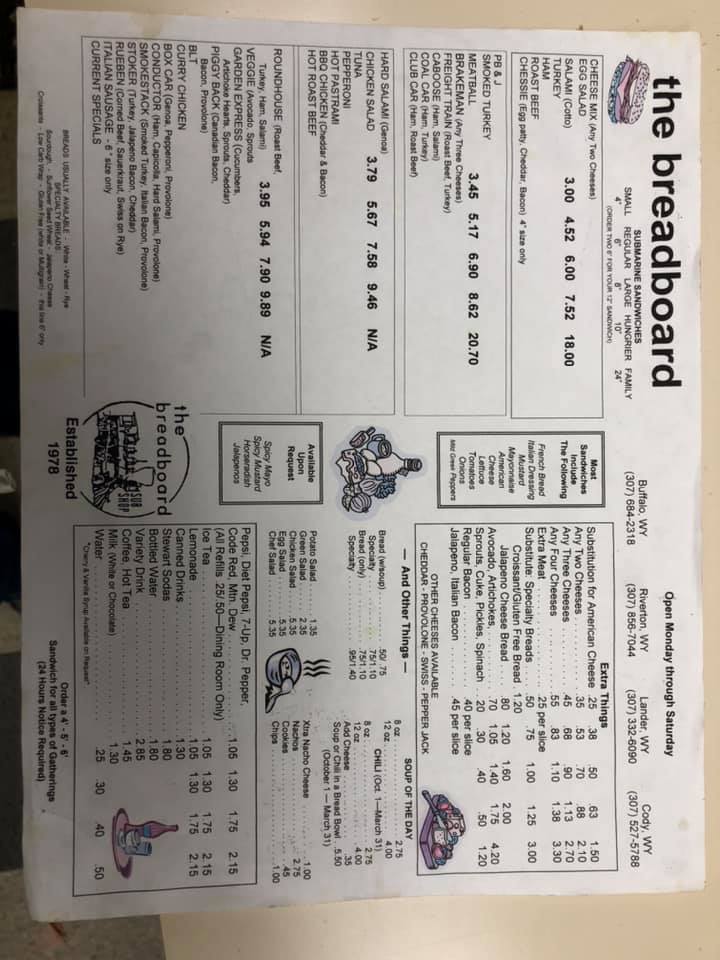 the breadboard
Open Monday through Saturday
Buffalo, WY Riverton, WY Lander, WY Cody, WY
(307) 684-2318 (307) 856-7044 (307) 332-6090 (307) 527-5788
SUBMARINE SANDWICHES
4" 6" 8" 10" 24"
SMALL REGULAR LARGE HUNGRIER FAMILY
(ORDER TWO 6" FOR YOUR 12" SANDWICH)
CHEESE MIX (Any Two Cheeses)
EGG SALAD
SALAMI (Cotto) 3.00 4.52 6.00 7.52 18.00
TURKEY
HAM
ROAST BEEF
CHESSIE (Egg patty, Cheddar, Bacon) 4" size only
PB & J
SMOKED TURKEY
MEATBALL 3.45 5.17 6.90 8.62 20.70
BRAKEMAN (Any Three Cheeses)
FREIGHT TRAIN (Roast Beef, Turkey)
CABOOSE (Ham, Salami)
COAL CAR (Ham, Turkey)
CLUB CAR (Ham, Roast Beef)
HARD SALAMI (Genoa)
CHICKEN SALAD 3.79 5.67 7.58 9.46 N/A
TUNA
PEPPERONI
HOT PASTRAMI
BBQ CHICKEN (Cheddar & Bacon)
HOT ROAST BEEF
ROUNDHOUSE (Roast Beef,
Turkey, Ham, Salami) 3.95 5.94 7.90 9.89 N/A
VEGGIE (Avocado, Sprouts
GARDEN EXPRESS (Cucumbers,
Artichoke Hearts, Sprouts, Cheddar)
PIGGY BACK (Canadian Bacon,
Bacon, Provolone)
BLT
CURRY CHICKEN
BOX CAR (Genoa, Pepperoni, Provolone)
CONDUCTOR (Ham, Capicolla, Hard Salami, Provolone)
SMOKESTACK (Smoked Turkey, Italian Bacon, Provolone)
STOKER (Turkey, Jalapeno Bacon, Cheddar)
RUEBEN (Corned Beef, Sauerkraut, Swiss on Rye)
ITALIAN SAUSAGE - 6" size only
CURRENT SPECIALS
BREADS USUALLY AVAILABLE White - Wheat - Rye
SPECIALTY BREADS:
Sourdough - Sunflower Seed Wheat - Jalapeno Cheese
Croissants - Low Carb Wrap - Gluten Free (white or Multigrain) - 6" only
Most
Sandwiches
Include
The Following
French Bread
Italian Dressing
Mustard
Mayonnaise
American
Cheese
Lettuce
Tomatoes
Onions
Mild Greek Peppers
Available
Upon
Request
Spicy Mayo
Spicy Mustard
Horseradish
Jalapenos
the
breadboard
SUB
SHOP
Established
1978
Extra Things
Substitution for American Cheese .25 .38 .50 .63 1.50
Any Two Cheeses .35 .53 .70 .88 2.10
Any Three Cheeses .45 .68 .90 1.13 2.70
Any Four Cheeses .55 .83 1.10 1.38 3.30
Extra Meat 25 per slice
Substitute: Specialty Breads .50 .75 1.00 1.25 3.00
Croissant/Gluten Free Bread 1.20
Jalapeno Cheese Bread .80 1.20 1.60 2.00
Avocado, Artichokes, .70 1.05 1.40 1.75 4.20
Sprouts, Cuke, Pickles, Spinach .20 .30 .40 .50 1.20
Regular Bacon .40 per slice
Jalapeno, Italian Bacon .45 per slice
OTHER CHEESES AVAILABLE
CHEDDAR - PROVOLONE - SWISS - PEPPER JACK
— And Other Things —
Bread (w/soup) .50/ .75
Specialty .75/1.10
Bread (only) .75/1.10
Specialty .95/1.40
Potato Salad 1.35
Green Salad 2.35
Chicken Salad 5.35
Egg Salad 5.35
Chef Salad 5.35
SOUP OF THE DAY
8 oz 2.75
12 oz 4.00
CHILI (Oct. 1—March 31)
8 oz 2.75
12 oz 4.00
Add Cheese .35
Soup or Chili in a Bread Bowl 5.50
(October 1 — March 31)
Xtra Nacho Cheese 1.00
Nachos 2.75
Cookies .45
Chips 1.00
Pepsi, Diet Pepsi, 7-Up, Dr. Pepper,
Code Red, Mtn. Dew 1.05 1.30 1.75 2.15
(All Refills .25/.50—Dining Room Only)
Ice Tea 1.05 1.30 1.75 2.15
Lemonade 1.05 1.30 1.75 2.15
Canned Drinks 1.30
Stewart Sodas 1.80
Bottled Water 1.80
Variety Drink 2.85
Coffee, Hot Tea 1.45
Milk (White or Chocolate) 1.30
Water .25 .30 .40 .50
*Cherry & Vanilla Syrup Available on Request*
Order a 4' - 5' - 6'
Sandwich for all types of Gatherings
(24 Hours Notice Required)